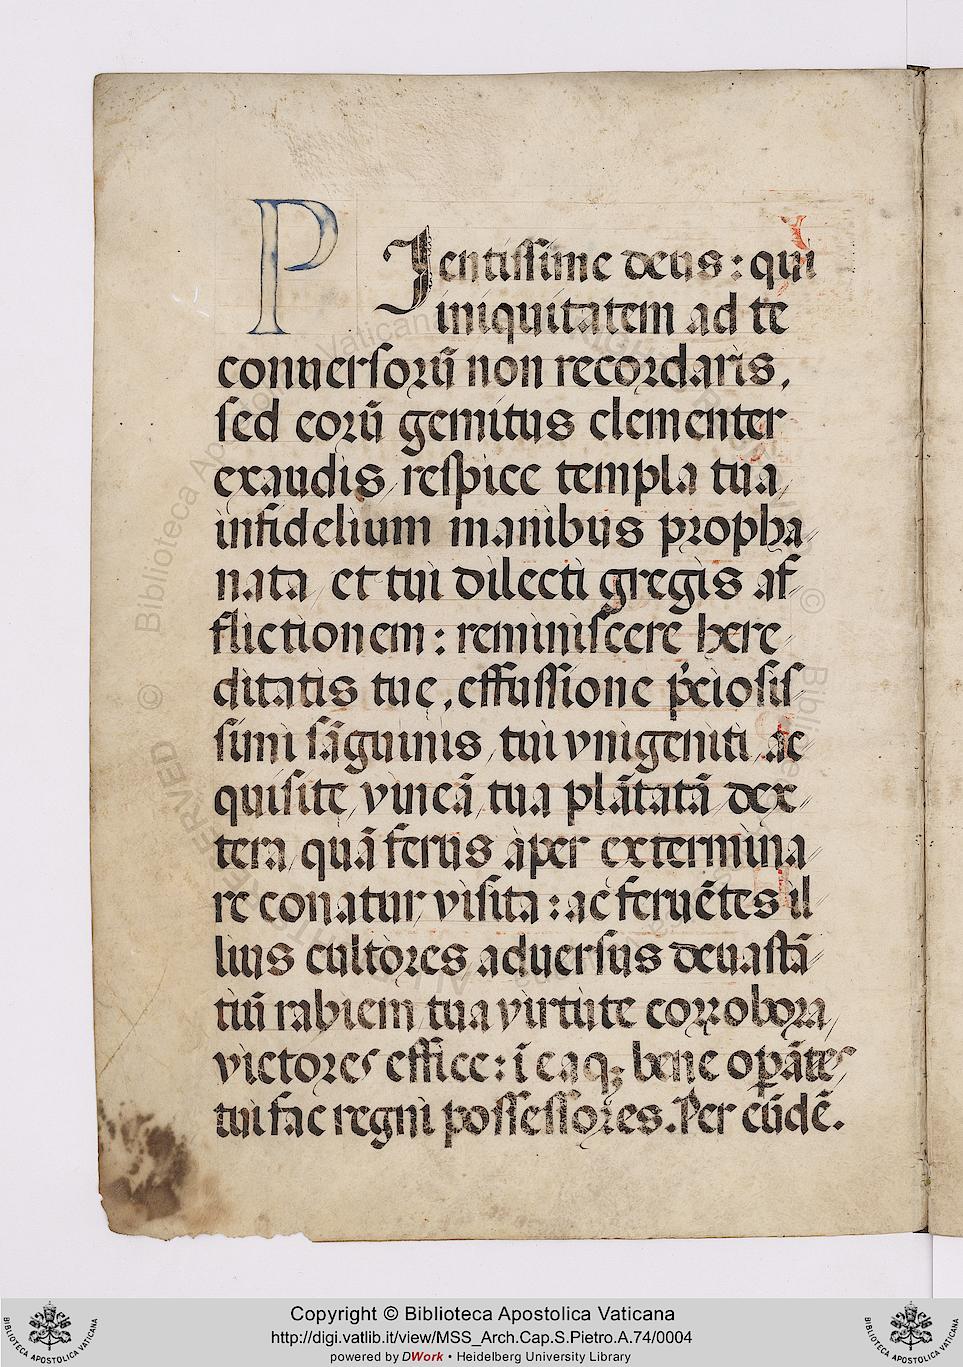 PIentissime deus: qui
iniquitatem ad te
conuersorū non recordaris,
sed eorū gemitus clementer
exaudis, respice templa tua,
infidelium manibus propha
nata, et tui dilecti gregis af
flictionem: reminiscere here
ditatis tue, effussione p̄ciosis
simi sāguinis, tui vnigeniti, ac
quisite, vineā, tua plātatā dex
tera, quā ferus aper extermina
re conatur, visita: ac feruētes il
lius cultores aduersus deuastā
tiū rabiem, tua virtute corrobora,
victores effice: ī eaq; bene opātes
tui fac regni possessores. Per eūdē.
Copyright © Biblioteca Apostolica Vaticana
http://digi.vatlib.it/view/MSS_Arch.Cap.S.Pietro.A.74/0004
powered by DWork • Heidelberg University Library
BIBLIOTECA APOSTOLICA VATICANA
BIBLIOTECA APOSTOLICA VATICANA